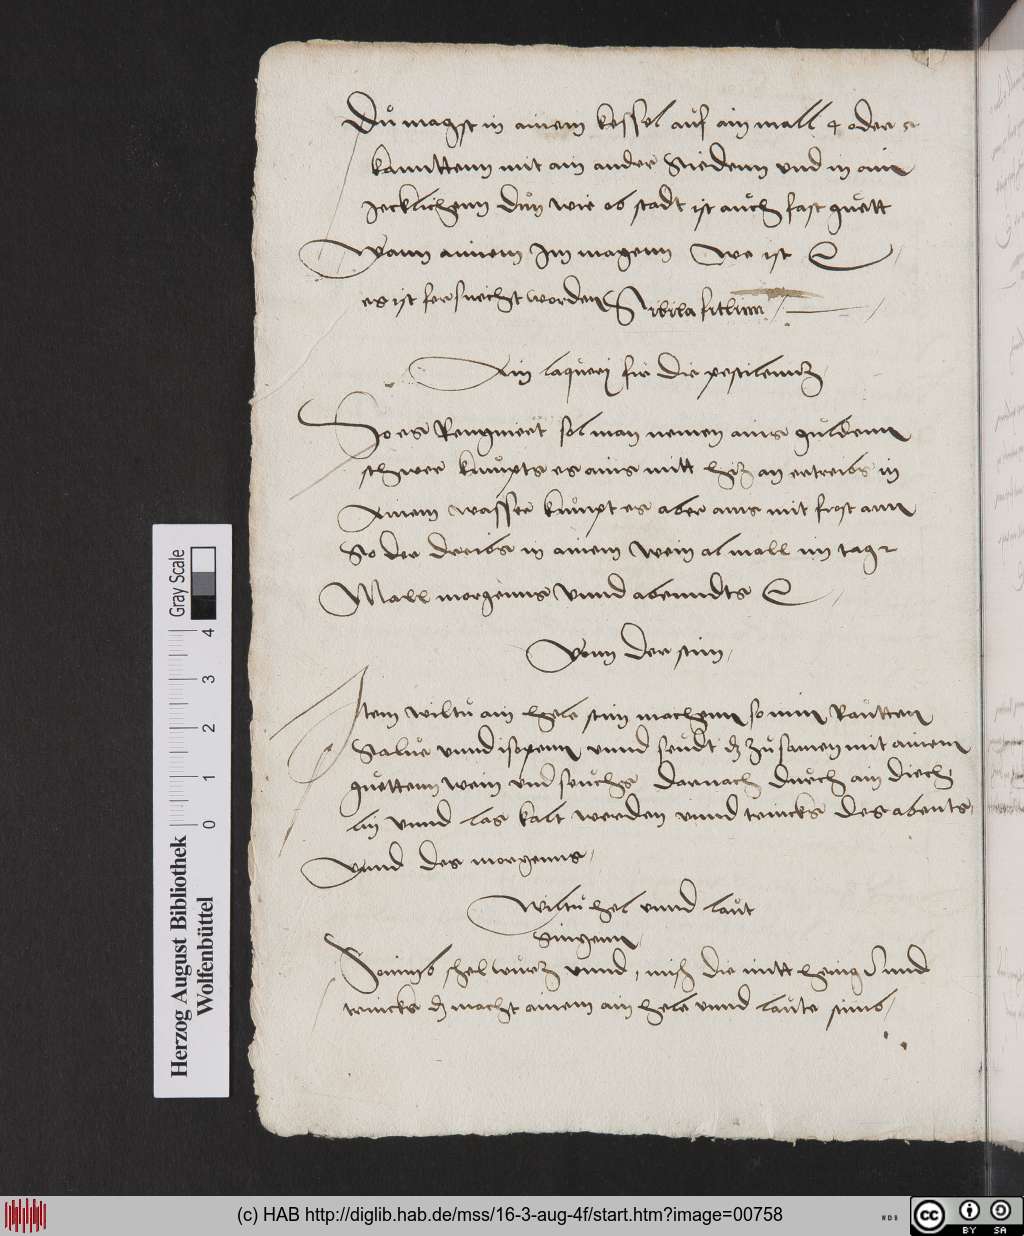 Dů magst in ainem kessel auf ain mall 4 oder 5
kanttenn mit ain ander Siedenn vnd in ain
Jecklichenn důn wie ob stadt ist auch fast guett
Wann ainem Im magenn we ist
es ist fersuecht worden Sibila
Ain laquerj fir die pestilenntz
So es Rengniert sol man nemen ains guldenn
schwer kumpts es ains mitt hitz an ertreibs in
Ainem wasser kumpt es aber ains mit frost ann
So der dreibs in ainem Wein al mall im tag 2
Mall morgenns Vnnd abenndts
Vonn der stim
Item wiltu ain hele stim machenn so nim Rautten
Salue vnnd isopenn vnnd seudt dz zusamen mit ainem
guettenn wein vnd seuchs darnach durch ain diech
lin vnnd las kalt werden vnnd trincks des abents
Vnnd des morgenns
Wiltu hel vnnd laut
Singenn
So nimb schelwurtz vnnd misch die mitt henig vnnd
trincks dz macht ainem ain hele vnnd laute stimb
Herzog August Bibliothek
Wolfenbüttel
0 1 2 3 4
Gray Scale
(c) HAB http://diglib.hab.de/mss/16-3-aug-4f/start.htm?image=00758
WDB
CC BY SA